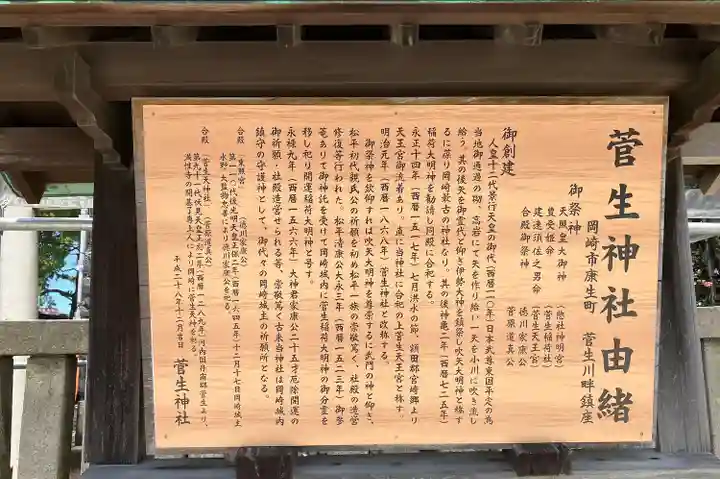 菅生神社由緒
岡崎市康生町 菅生川畔鎮座
御祭神
天照皇大御神 (應社神明宮)
豊受姫命 (菅生稲荷社)
建速須佐之男命 (菅生天王宮)
合殿御祭神 徳川家康公
菅原道真公
御創建
人皇十二代景行天皇の御代(西暦一一〇年)日本武尊東国平定の為
当地御通過の砌、高岩にて矢を作り給い一矢を小川に吹き流し
給う。其の後矢を御霊代と仰ぎ伊勢大神を鎮祭し吹矢大明神と称す
るに葆り岡崎最古の神社なり。其の後神亀二年(西暦七二五年)
稲荷大明神を勧請し同殿に合祀する。
永正十四年(西暦一五一七年)七月洪水の節、額田郡宮崎郷より
天王宮御流着あり。直に当神社に合祀の上菅生天王宮と称す。
明治元年(西暦一八六八年)菅生神社と改称する。
御祭神を欽仰すれば吹矢大明神を尊崇するに武門の神と仰ぎ、
松平初代親氏公の祈願を初め松平一族の崇敬篤く、社殿の造営
修復等行われた。松平清康公大永三年(西暦一五二三年)御参
篭ありて御神託を受けて岡崎城内に菅生稲荷大明神の御分霊を
移し祀り開運稲荷大明神と号す。
永禄九年(西暦一五六六年)大神君家康公二十五才厄除開運の
御祈願・社殿造営せられる等、崇敬篤く古来当神社は岡崎城内
鎮守の守護神として、御代々の岡崎城主の祈願所となる。
合殿 (東照宮) (徳川家康公)
第一一〇代後光明天皇正保二年(西暦一六四五年)十二月十七日岡崎城主
水野大監物忠善により徳川家康公を祀る。
合殿 (菅生天神社) (菅原道真公)
第九十二代伏見天皇正応二年(西暦一二八九年)河内国丹南郡菅生より、
満性寺の開基了専上人により岡崎に菅生天神を祀る。
平成二十八年十二月吉日 菅生神社